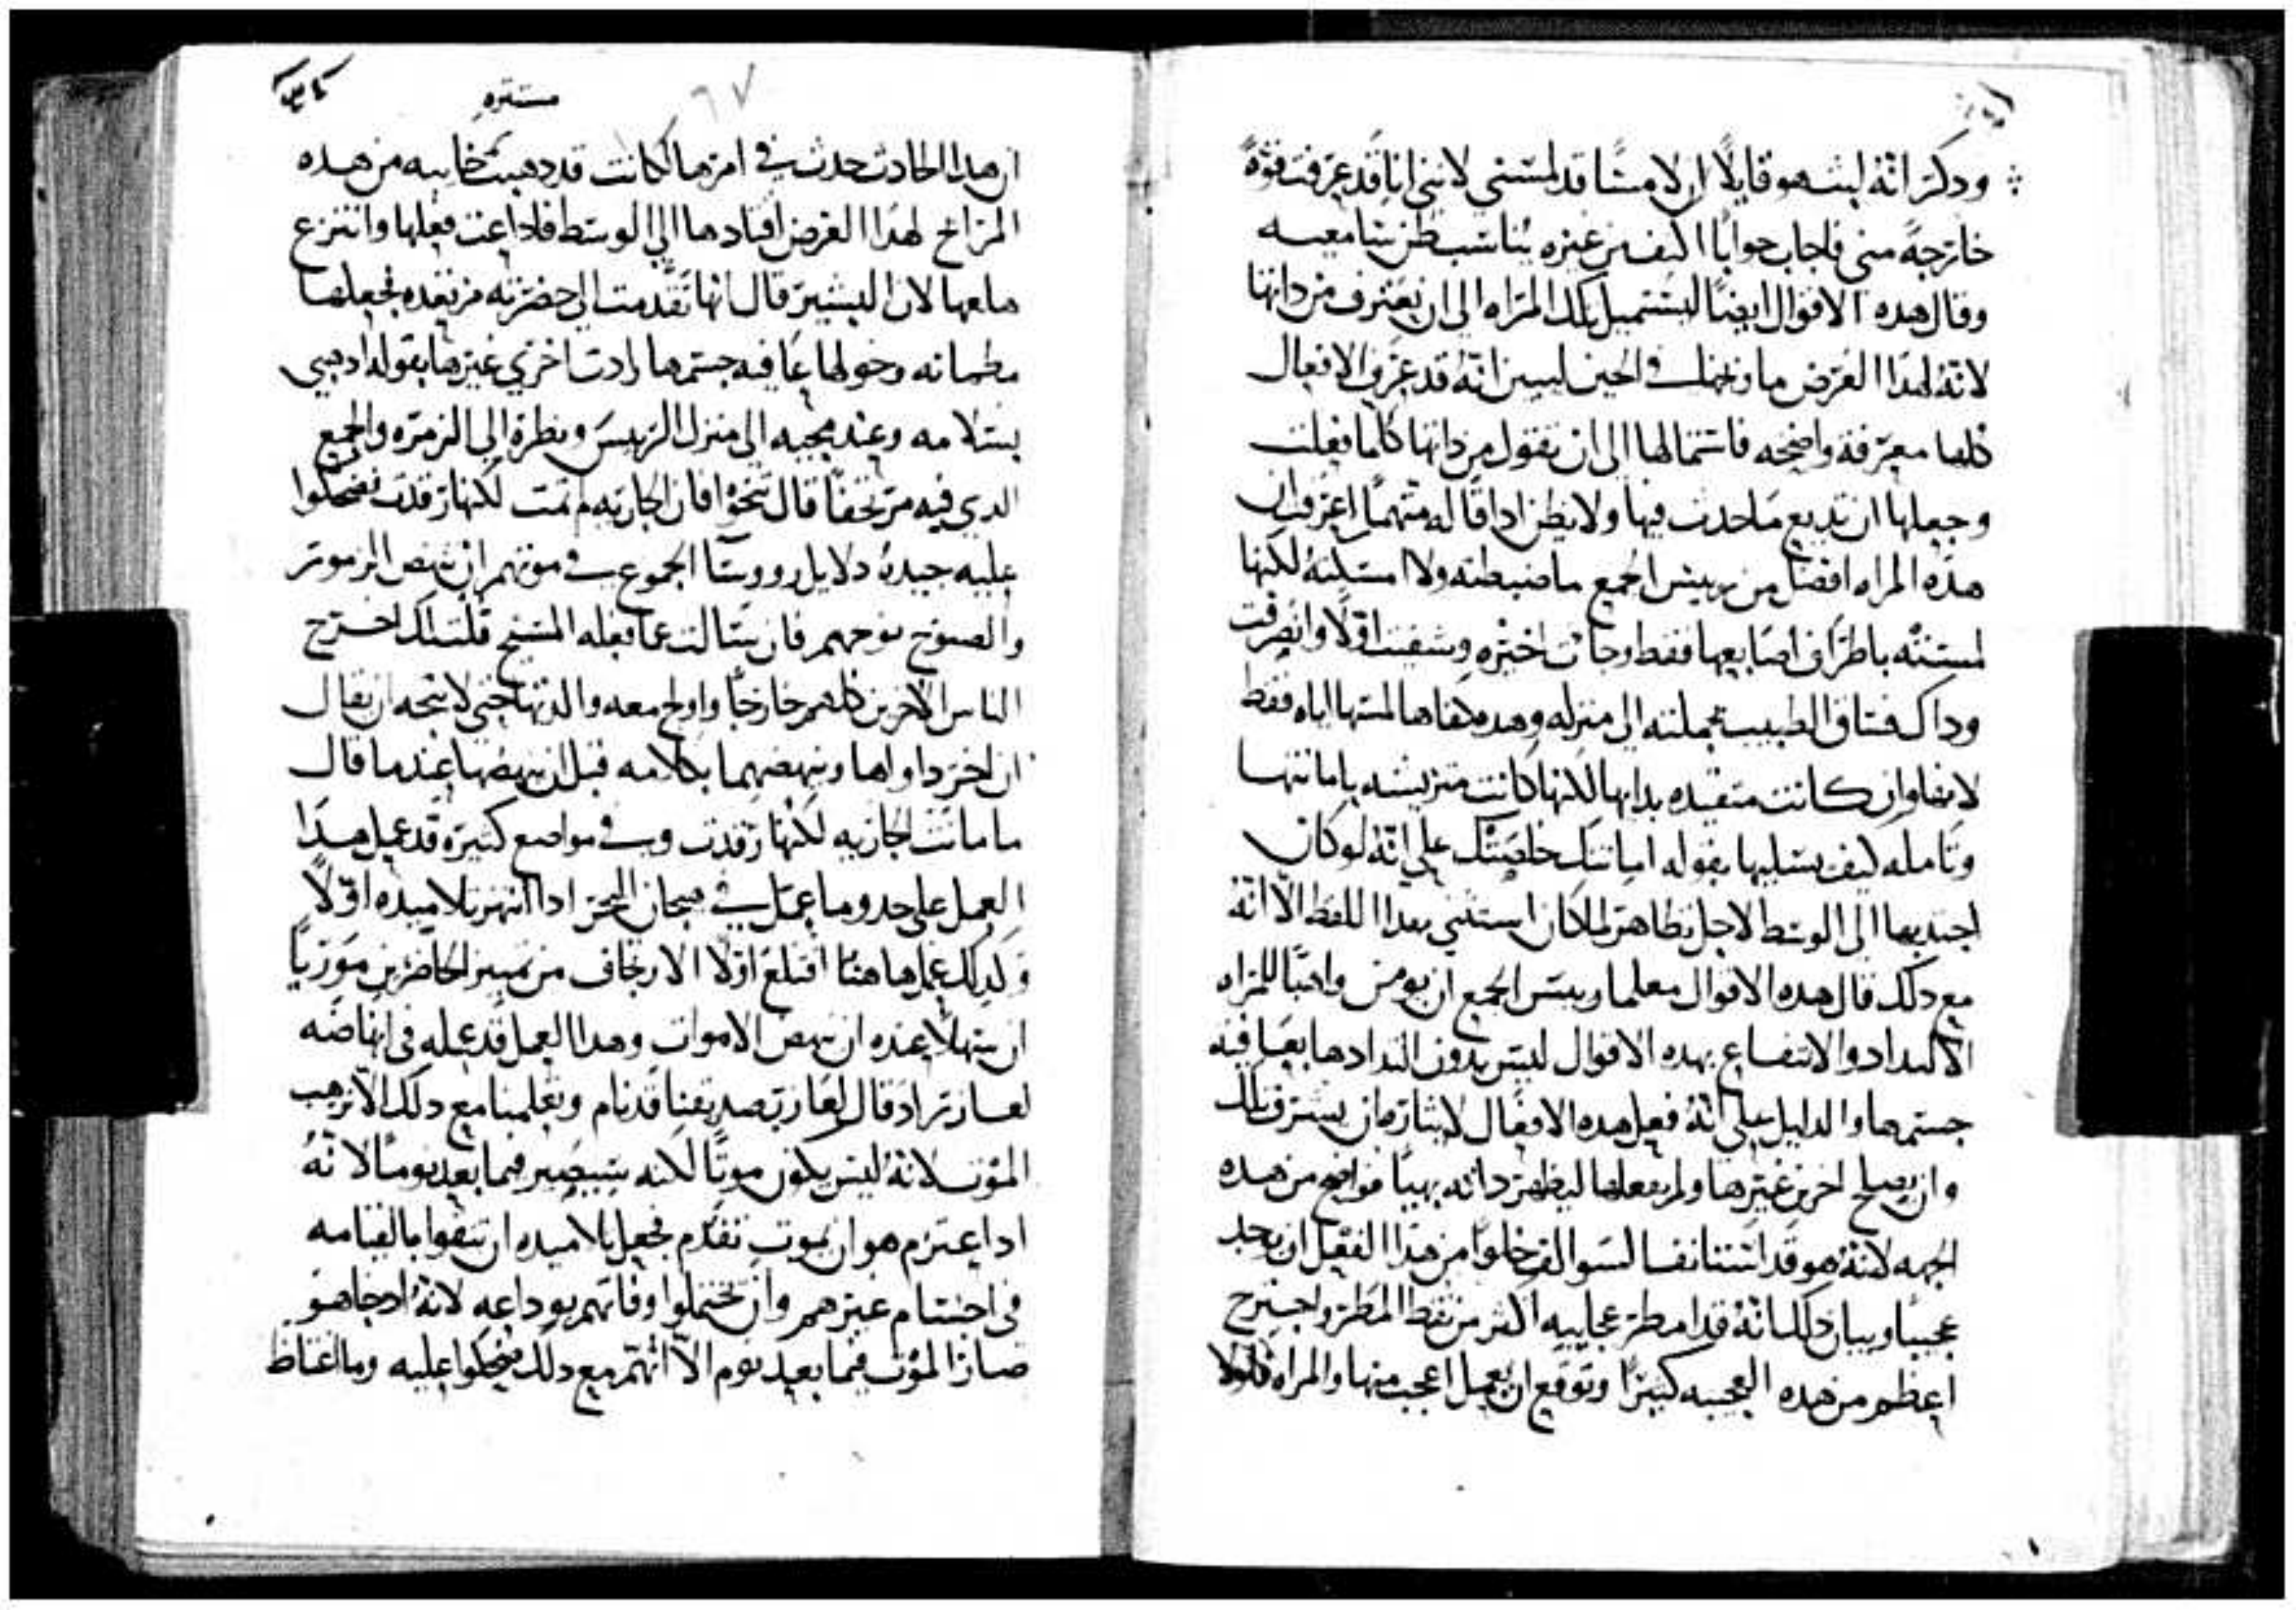 وذكر انه ليثبته هو قايلًا ان لامسًا قد لمسني لانني انا قد عرفت قوةً
خارجةً مني فاجاب جوابًا اكثف من غيره يناسب ظن سامعيه
وقال هده الاقوال ايضًا ليستميل تلك المراه الى ان تعترف من داتها
لانه لهدا الغرض ما وبخها في الحين ليبين انه قد عرف الافعال
كلها معرفة واضحه فاستمالها الى ان تقول من داتها كلما فعلت
وجعلها ان تديع ما حدث فيها ولا يظن ادا قاله متهمًا اعرفت ان
هده المراه افضل من رييس الجمع ما ضبطته ولا امسكته لكنها
لمسته باطراف اصابعها فقط وجات اخيره وشفيت اولًا وانصرفت
وداك فساق الطبيب بجملته الى منزله وهده كفاها لمسها اياه فقط
لانها وان كانت متقيده بدايها لكنها كانت متريشه بامانتها
وتامله كيف يسليها بقوله امانتك خلصتك على انه لو كان
اجتدبها الى الوسط لاجل تظاهر لما كان استثنى بهدا اللفظ الا انه
مع دلك قال هده الاقوال معلما رييس الجمع ان يومن واهبًا للمراه
الالتداد والانتفاع بهده الاقوال ليس بدون التدادها بعافية
جسمها والدليل على انه فعل هده الافعال لايثاره ان يشرف تلك
وان يصلح اخرين غيرها ولم يفعلها ليظهر داته بهيًا فواضح من هده
الجهه لانه هو قد
عجيبًا وبيان دلك انه قد امطر عجايبه اكثر من نقط المطر واجترح
اعظم من هده العجيبه كثيرًا وتوقع ان يعمل اعجب منها والمراه فلولا
مستتره
ان هدا الحادث حدث في امرها لكانت قد دهبت خايبه من هده
المراخ لهدا الغرض اقتادها الى الوسط فاداعت فعلها وانتزع
هلعها لان البشير قال انها تقدمت الى حضرته مرتعده فجعلها
مطمانه وخولها عافيه جسمها زادت اخرى غيرها بقوله ادهبي
بسلامه وعند مجيه الى منزل الرييس ونظره الى الزمره والجمع
الدي فيه مرتجفًا قال تنحوا فان الجاريه لم تمت لكنها رقدت فضحكوا
عليه جيده دلايل روسا الجموع في موتهم ان تنهض الزمور
والصنوج نوحهم فان سالت عما فعله المسيح قلت لك اخرج
الناس الاخرين كلهم خارجًا واولج معه والديها حتى لا يتجه ان يقال
ان اخر داواها وينهضهما بكلامه قبل ان ينهضها عندما قال
ما ماتت الجاريه لكنها رقدت وفي مواضع كثيره قد عمل هدا
العمل على حدو ما عمل في هيجان البحر ادا انتهر تلاميده اولًا
وكدلك عملها هنا اقتلع اولًا الارتجاف من تمييز الحاضرين موريًا
ان سهلًا عنده ان ينهض الاموات وهدا العمل قد عمله في انهاضه
لعازر اد قال لعازر صديقنا قد نام ويعلمنا مع دلك الا نرهب
الموت لانه ليس يكون موتًا لكنه سيصير فيما بعد نومًا لانه
اد اعتزم هو ان يموت تقدم فجعل تلاميده ان يثقوا بالقيامه
في اجسام غيرهم وان يحتملوا وفاتهم بوداعه لانه اد جا هو
صار الموت فيما بعد نوم الا انهم مع دلك ضحكوا عليه وما اغتاظ